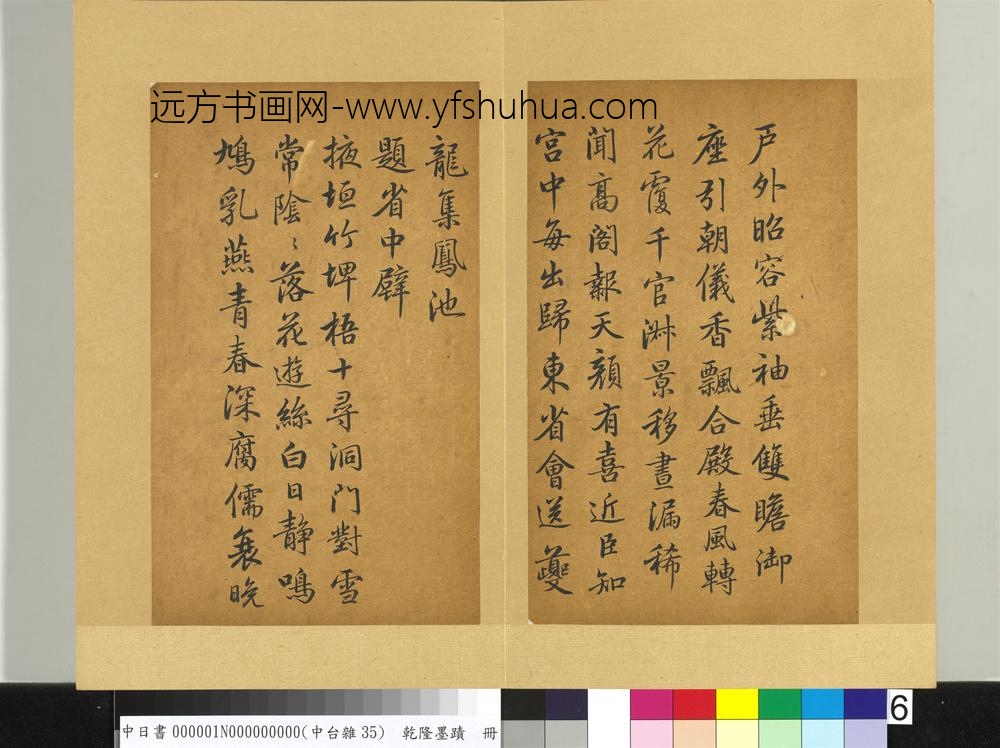 远方书画网-www.yfshuhua.com
戶外昭容紫袖垂雙瞻御
座引朝儀香飄合殿春風轉
花覆千官淋景移晝漏稀
聞高閣報天顏有喜近臣知
宮中每出歸東省會送夔
龍集鳳池
題省中壁
掖垣竹埤梧十尋洞門對雪
常陰〻落花遊絲白日静鳴
鳩乳燕青春深腐儒衰晚
6
中日書 000001N000000000(中台雜35) 乾隆墨蹟 冊